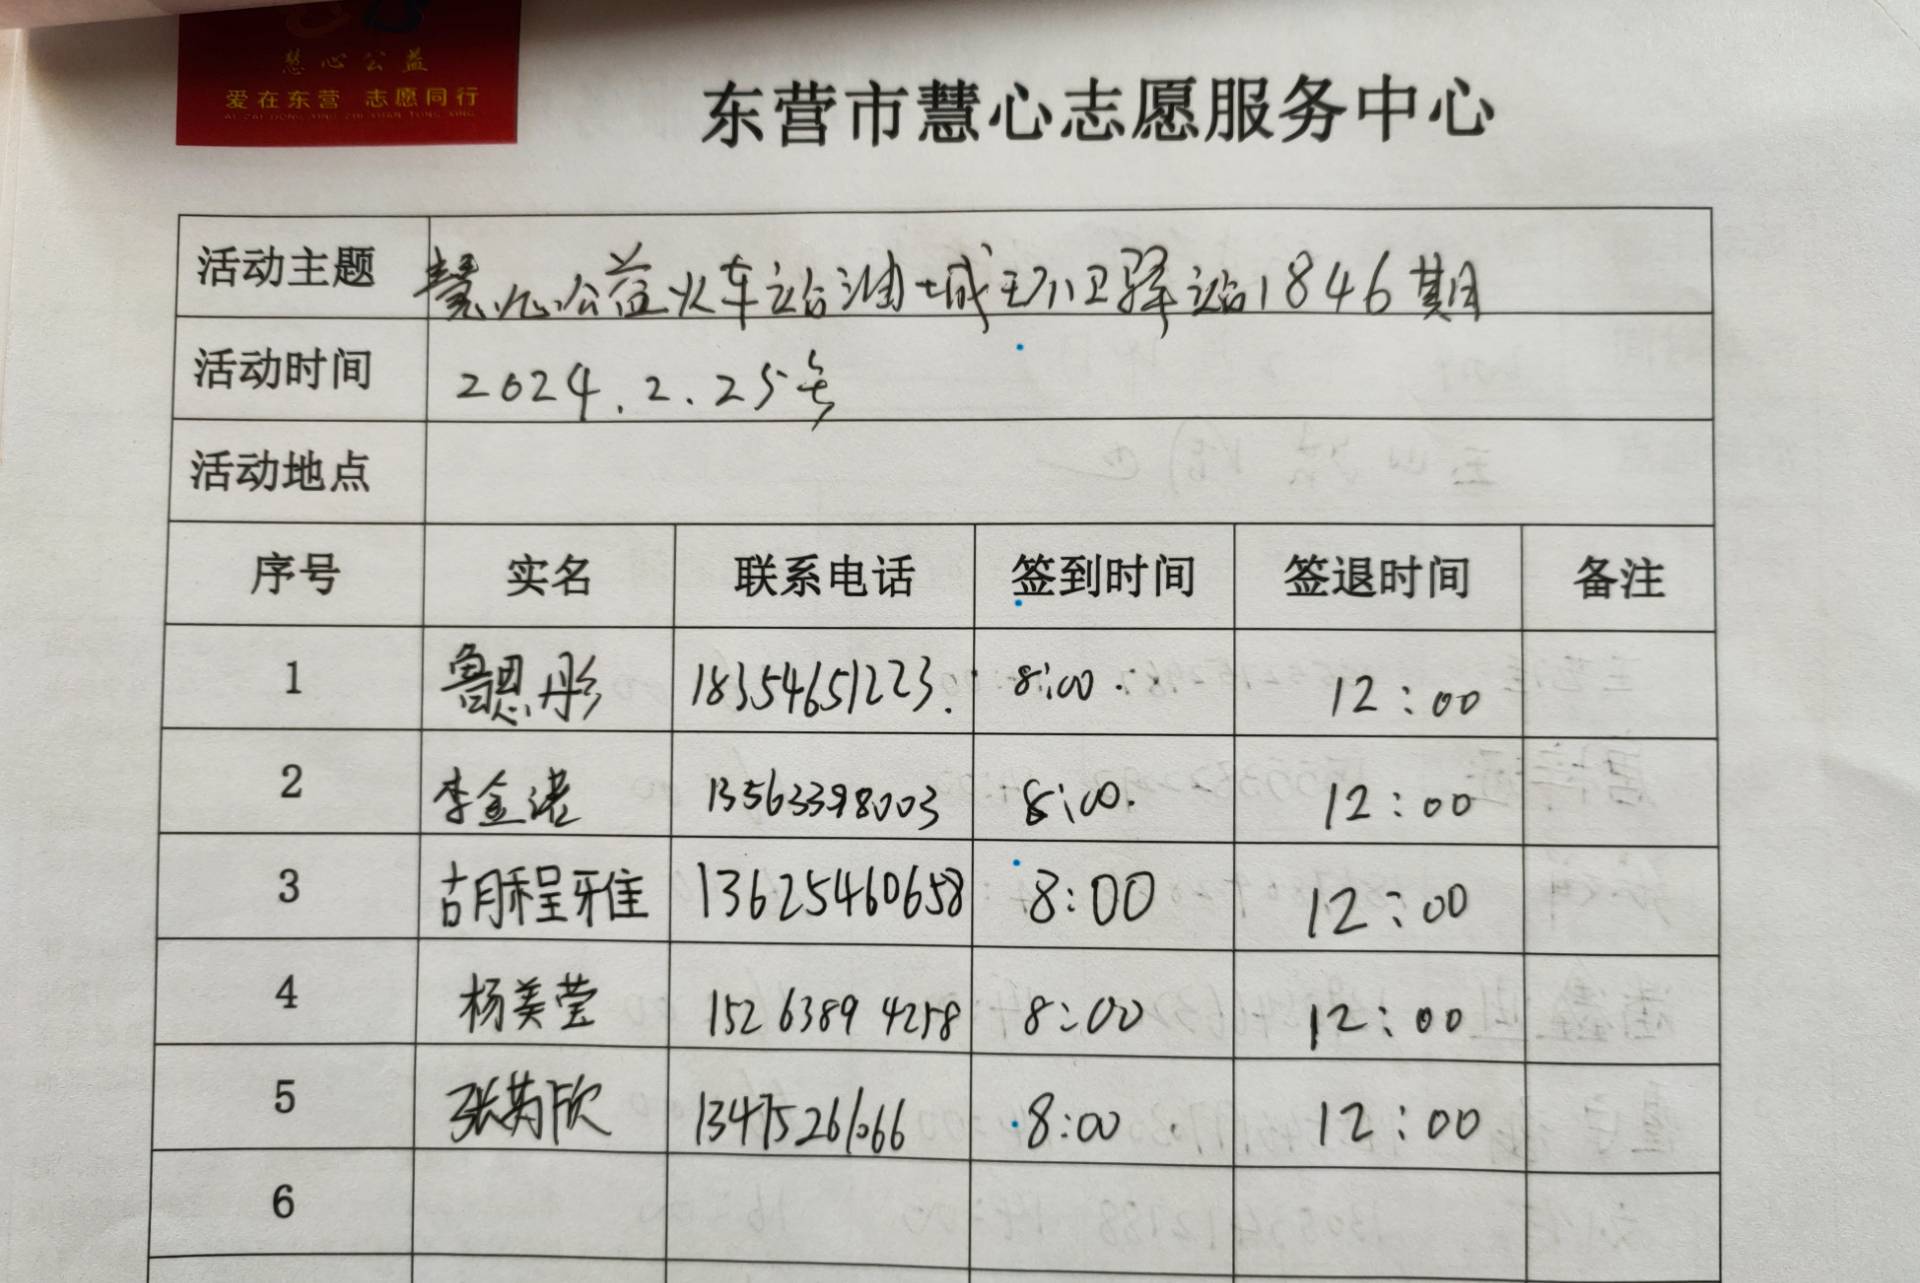 慧心公益
爱在东营 志愿同行
AI ZAI DONG YING ZHI YUAN TONG XING
东营市慧心志愿服务中心
活动主题 慧心公益火车站油城环卫驿站1846期
活动时间 2024.2.25号
活动地点
序号 实名 联系电话 签到时间 签退时间 备注
1 鲁思彤 18354651223. 8:00 12:00
2 李金诺 13563398003 8:00. 12:00
3 胡程雅 13625460658 8:00 12:00
4 杨美莹 15263894258 8:00 12:00
5 张芮欣 13475261066 8:00 12:00
6